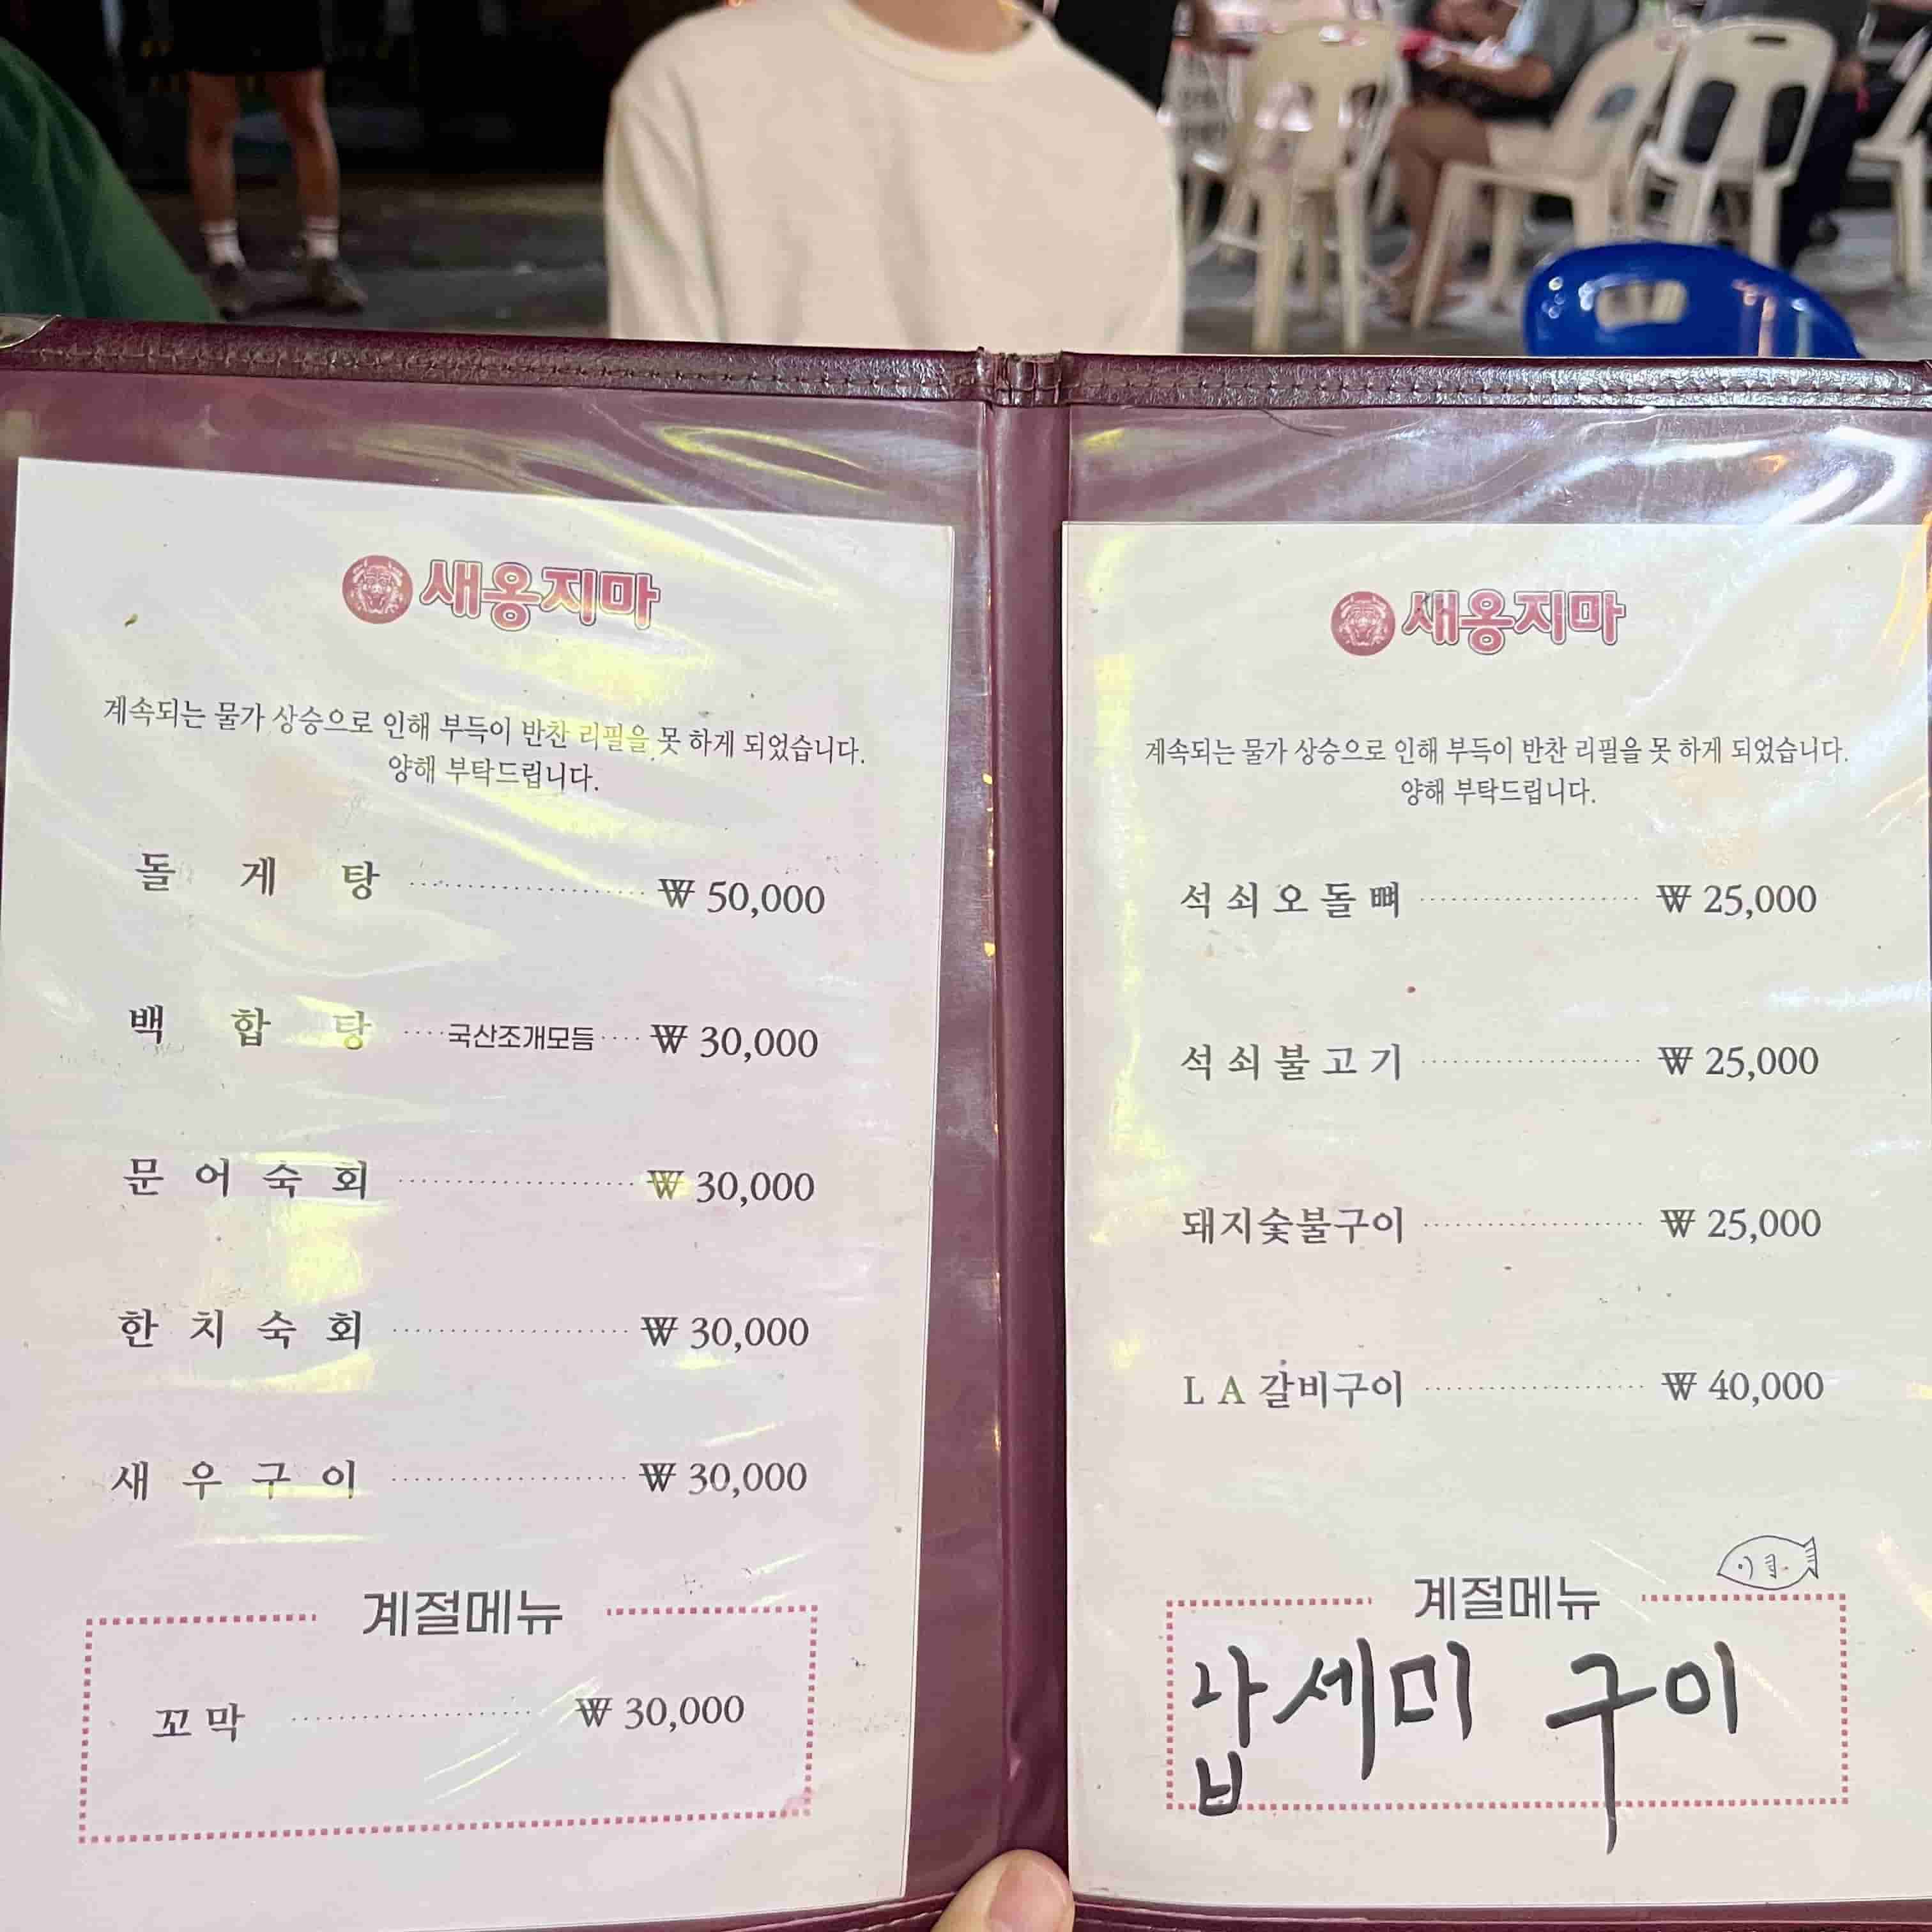 새옹지마
계속되는 물가 상승으로 인해 부득이 반찬 리필을 못 하게 되었습니다.
양해 부탁드립니다.
돌게탕 ₩ 50,000
백합탕 국산조개모듬 ₩ 30,000
문어숙회 ₩ 30,000
한치숙회 ₩ 30,000
새우구이 ₩ 30,000
계절메뉴
꼬막 ₩ 30,000
새옹지마
계속되는 물가 상승으로 인해 부득이 반찬 리필을 못 하게 되었습니다.
양해 부탁드립니다.
석쇠오돌뼈 ₩ 25,000
석쇠불고기 ₩ 25,000
돼지숯불구이 ₩ 25,000
LA갈비구이 ₩ 40,000
계절메뉴
납세미 구이